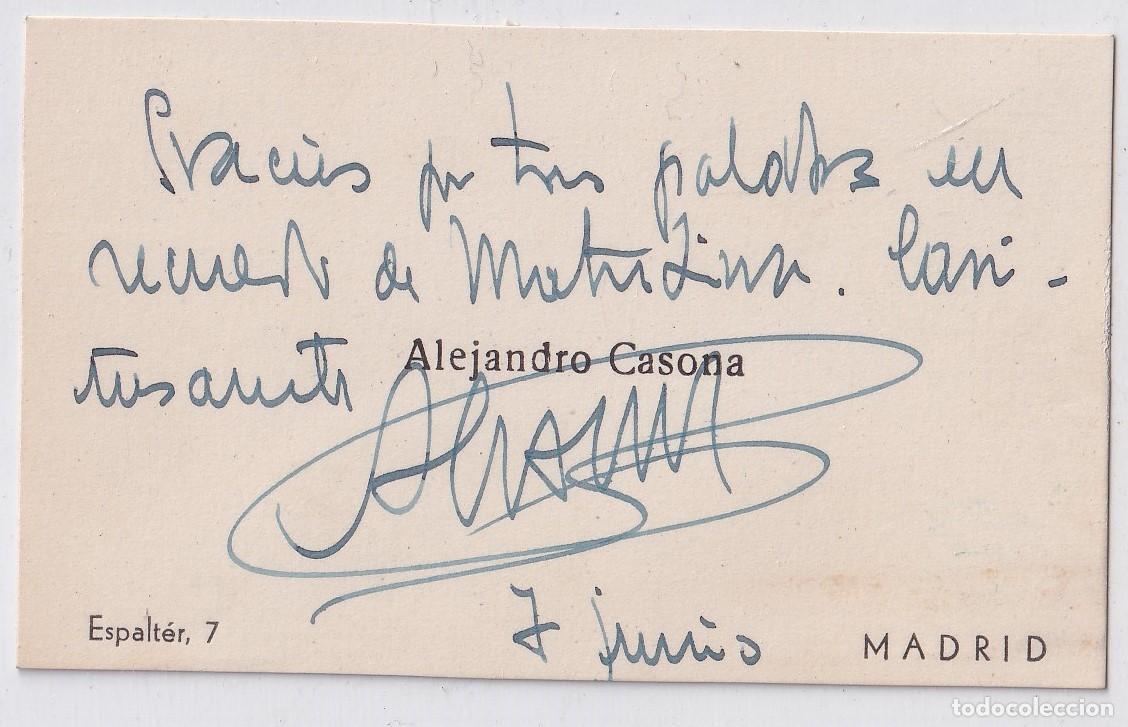 Gracias por tus palabras en
recuerdo de Matilina. Cari-
ñosamente
Alejandro Casona
Espaltér, 7
7 junio
MADRID
todocoleccion